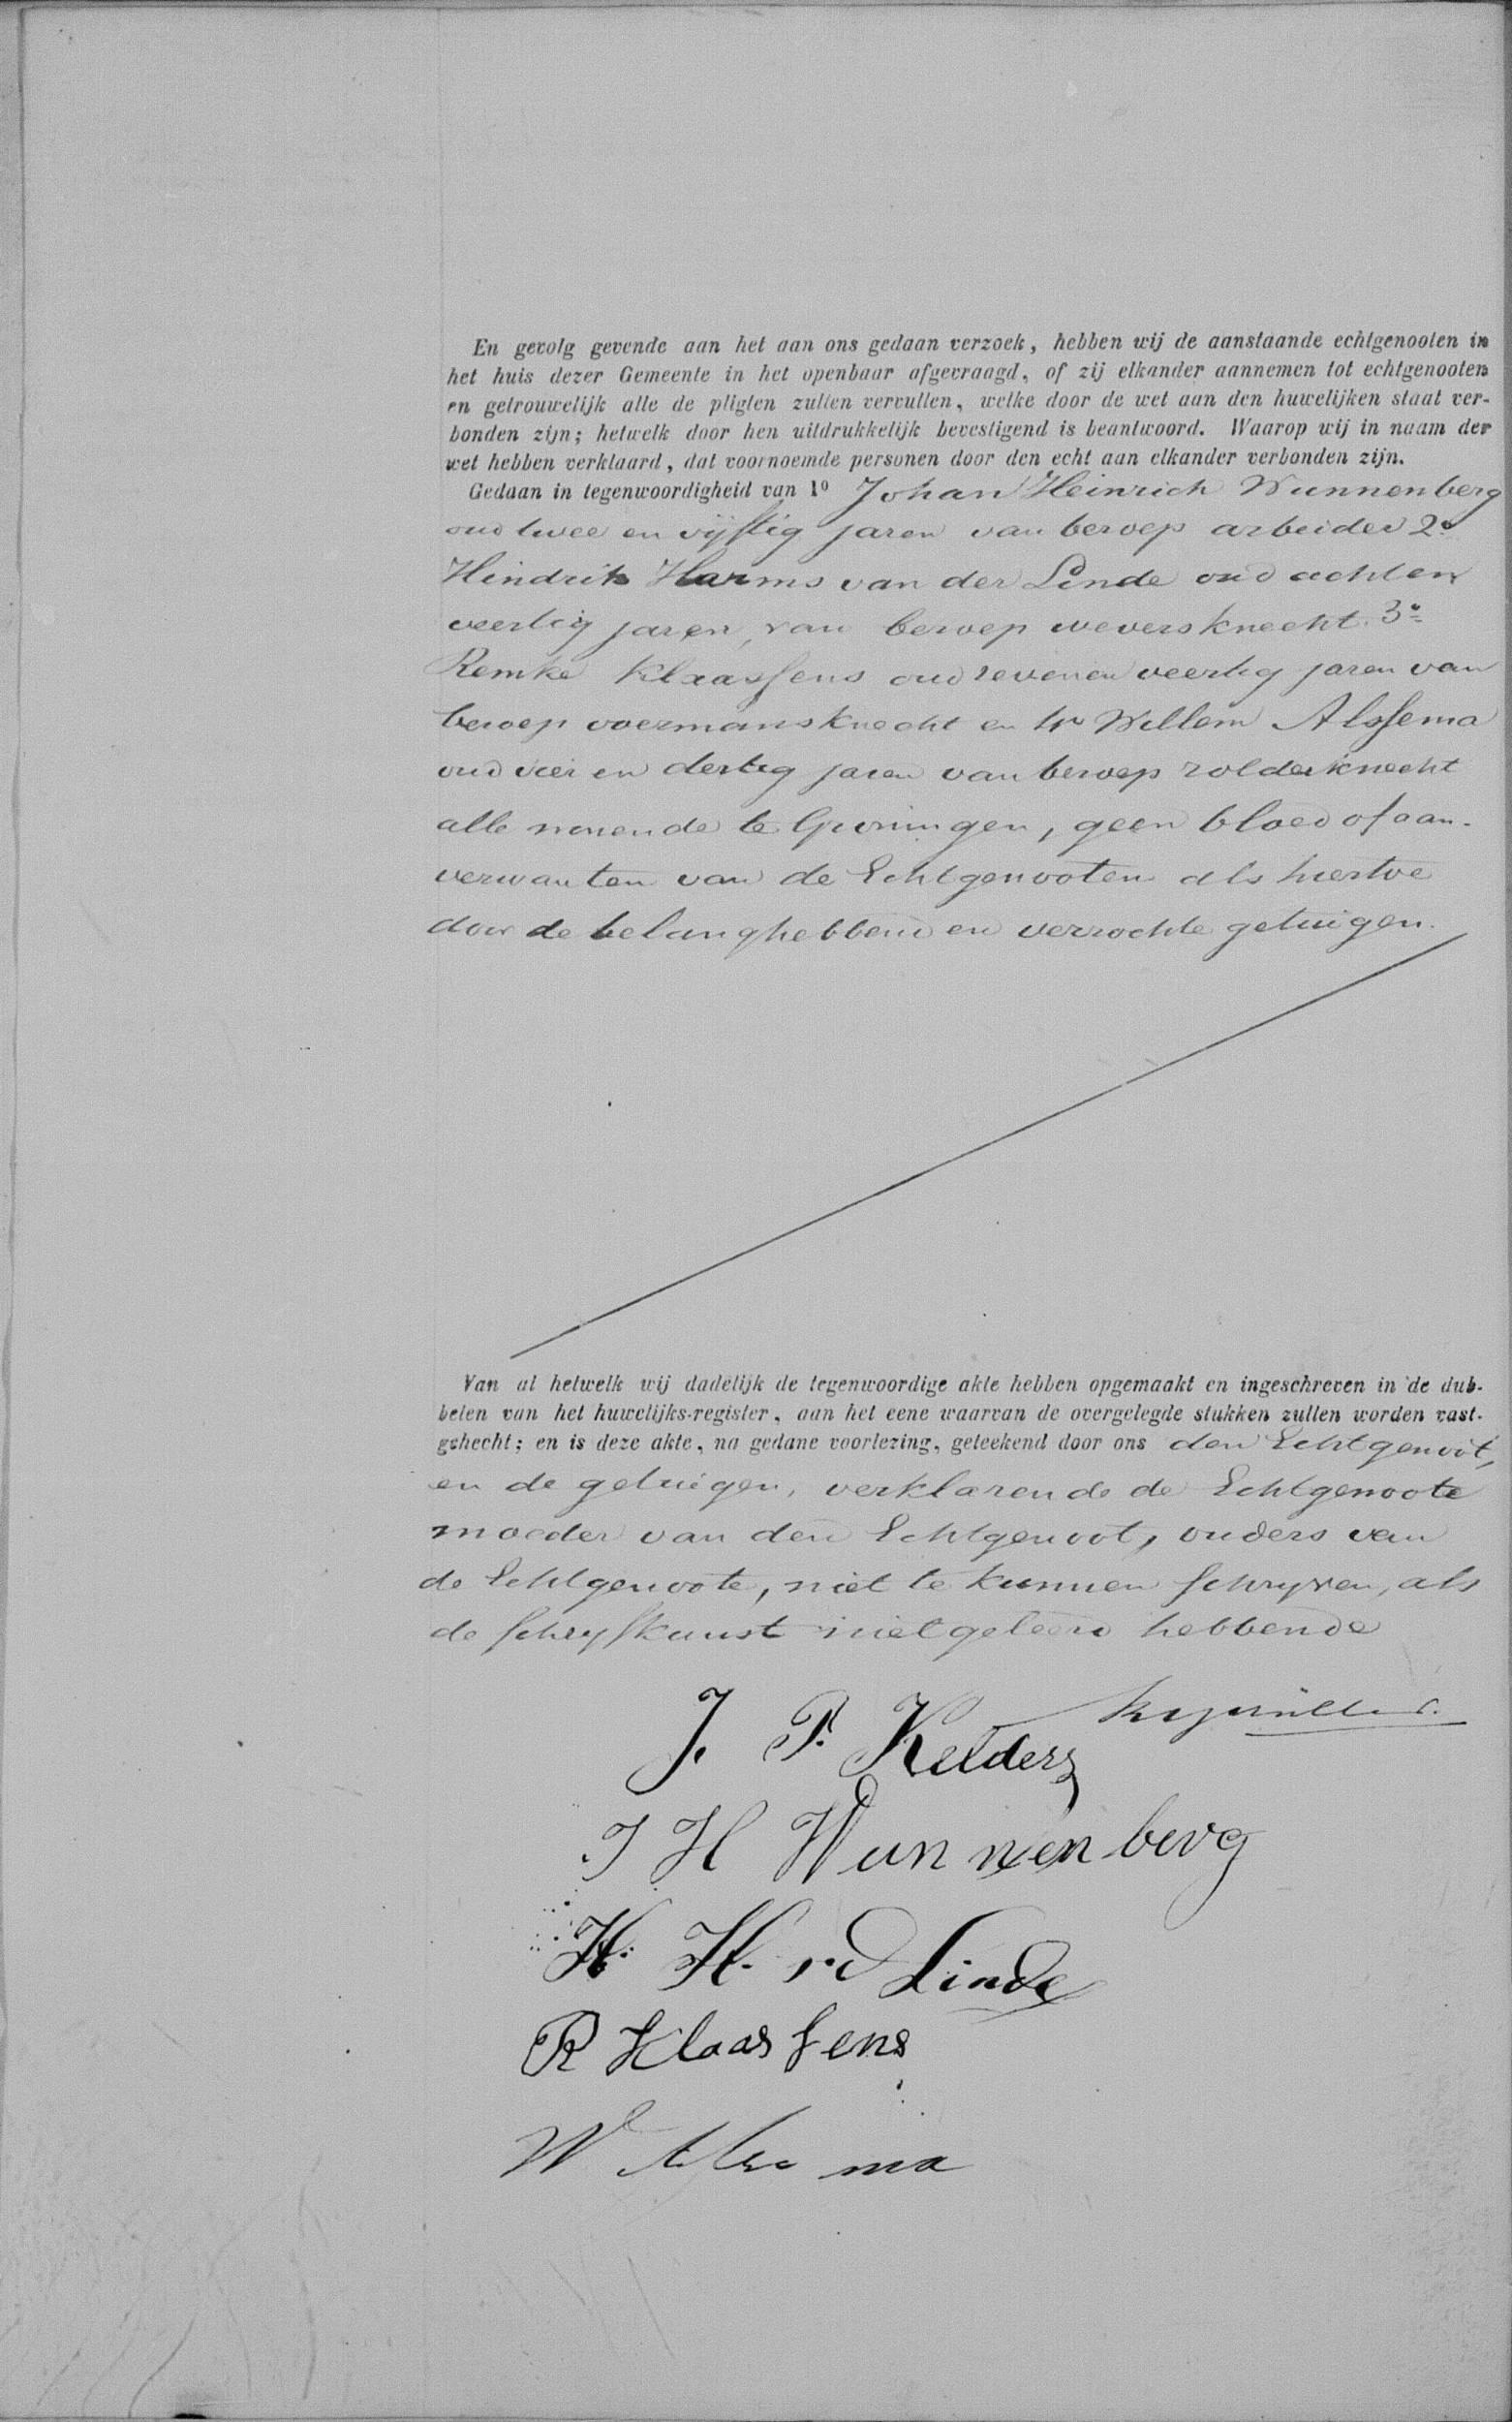 En gevolg gevende aan het aan ons gedaan verzoek, hebben wij de aanstaande echtgenooten in
het huis dezer Gemeente in het openbaar afgevraagd, of zij elkander aannemen tot echtgenooten
en getrouwelijk alle de pligten zullen vervullen, welke door de wet aan den huwelijken staat ver-
bonden zijn; hetwelk door hen uitdrukkelijk bevestigend is beantwoord. Waarop wij in naam der
wet hebben verklaard, dat voornoemde personen door den echt aan elkander verbonden zijn.
Gedaan in tegenwoordigheid van 1º Johan Heinrich Wunnenberg
oud twee en vijftig jaren van beroep arbeider 2º
Hindrik Harms van der Linde oud acht en
veertig jaren, van beroep weversknecht. 3º
Remke Klaassens oud zeven en veertig jaren van
beroep voermansknecht en 4º Willem Alssema
oud vier en dertig jaren van beroep zolderknecht
alle wonende te Groningen, geen bloed of aan-
verwanten van de Echtgenooten als hiertoe
door de belanghebbenden verzochte getuigen.
Van al hetwelk wij dadelijk de tegenwoordige akte hebben opgemaakt en ingeschreven in de dub-
belen van het huwelijks-register, aan het eene waarvan de overgelegde stukken zullen worden vast-
gehecht; en is deze akte, na gedane voorlezing, geteekend door ons den Echtgenoot,
en de getuigen, verklarende de Echtgenoote
moeder van den Echtgenoot, ouders van
de Echtgenoote, niet te kunnen schryven, als
de schryfkunst niet geleerd hebbende
J. P. Kelders
J H Wunnenberg
H. H. v d Linde
R Klaassens
W Alssema